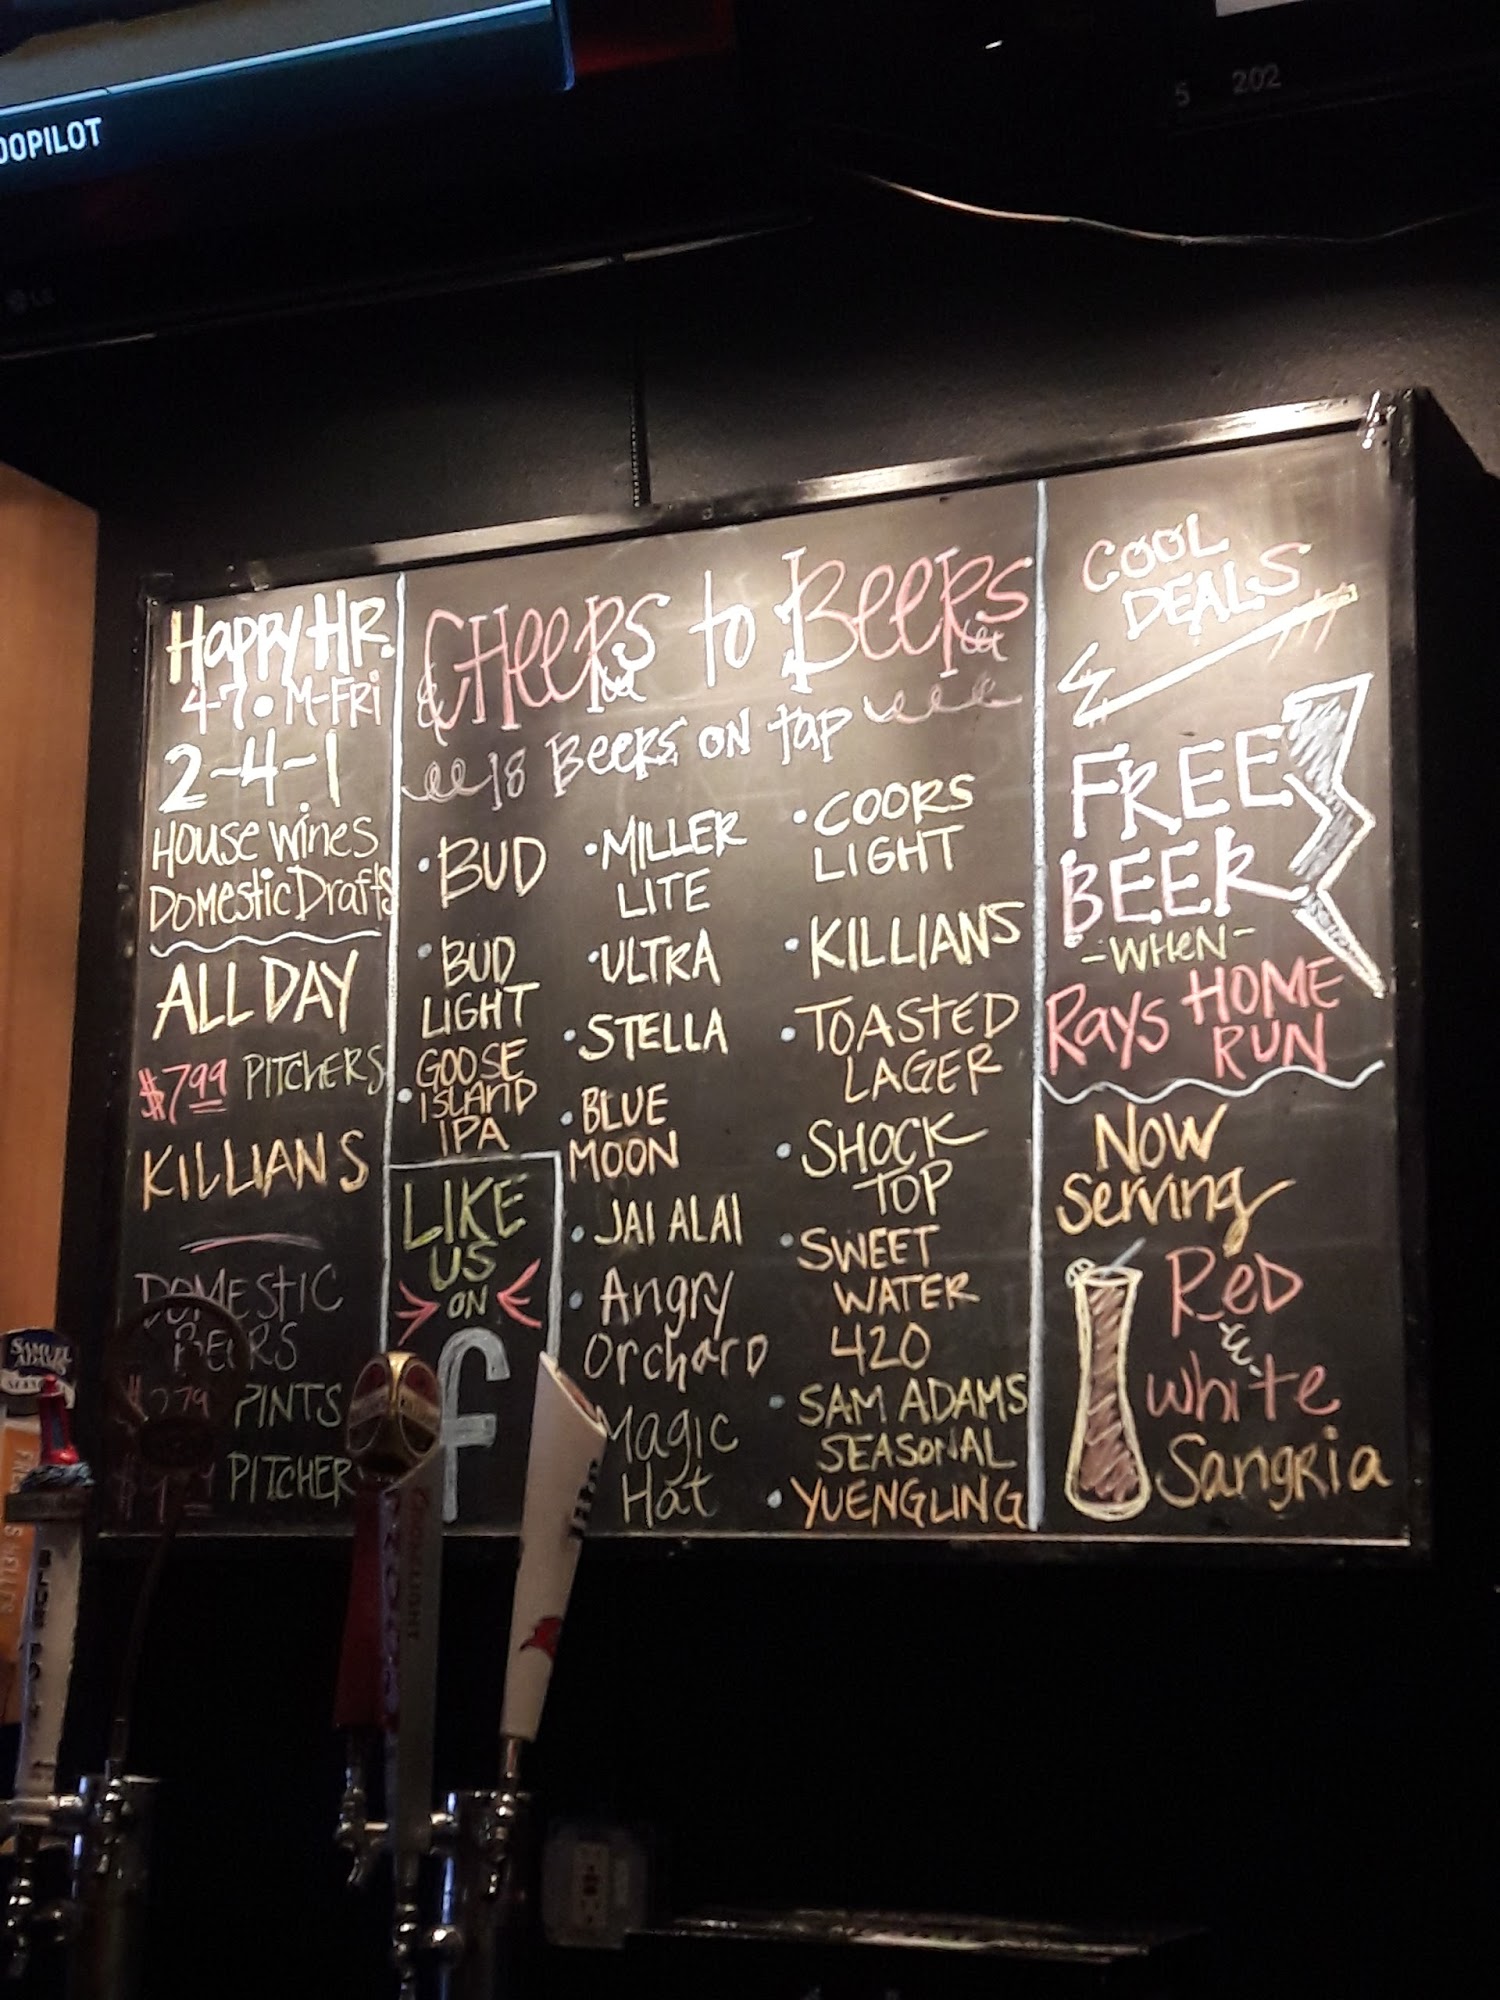 OOPILOT
5 202
LG
HAPPY HR.
4-7 • M-FRI
2-4-1
HOUSE WINES
DOMESTIC DRAFTS
ALL DAY
$7.99 PITCHERS
KILLIANS
DOMESTIC
BEERS
PINTS
PITCHER
CHEERS to BEERS
18 BEERS ON tap
• BUD
• BUD
LIGHT
• GOOSE
ISLAND
IPA
LIKE
US
ON
f
• MILLER
LITE
• ULTRA
• STELLA
• BLUE
MOON
• JAI ALAI
• Angry
Orchard
Magic
Hat
• COORS
LIGHT
• KILLIANS
• TOASTED
LAGER
• SHOCK
TOP
• SWEET
WATER
420
• SAM ADAMS
SEASONAL
• YUENGLING
COOL
DEALS
FREE
BEER
-WHEN-
RAYS HOME
RUN
NOW
Serving
RED
&
White
SangRia
SAMUEL
ADAMS